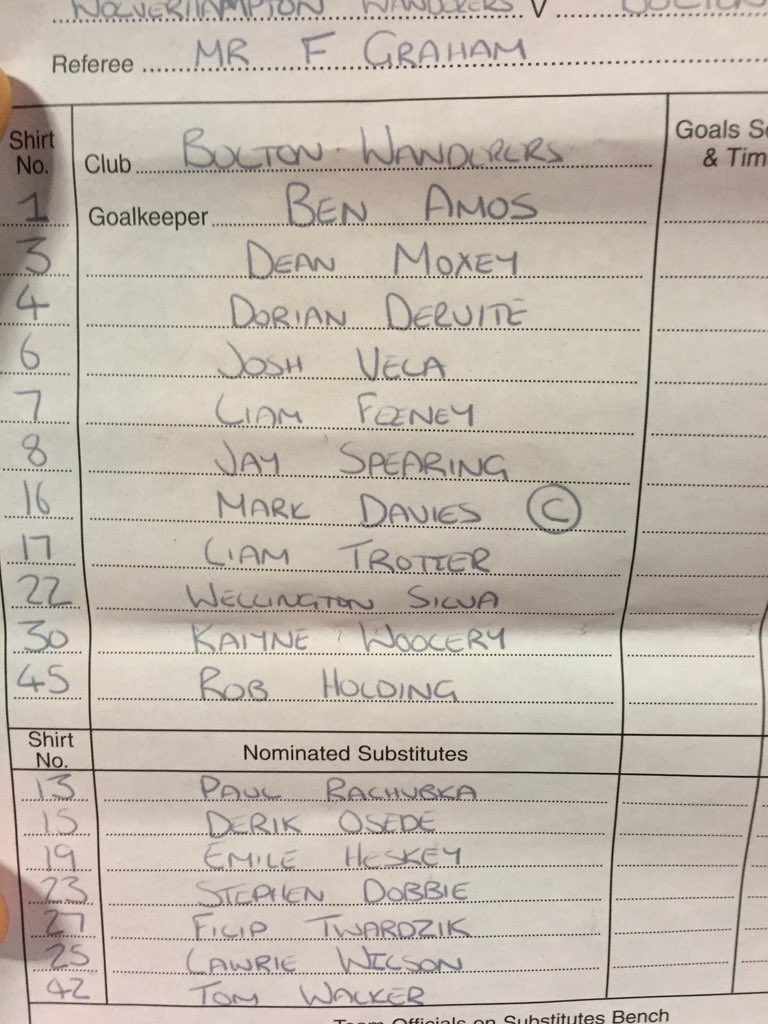 WOLVERHAMPTON WANDERERS V BOLTON
Referee MR F GRAHAM
Shirt No. Club BOLTON WANDERERS Goals Sc & Tim
1 Goalkeeper BEN AMOS
3 DEAN MOXEY
4 DORIAN DERVITE
6 JOSH VELA
7 LIAM FEENEY
8 JAY SPEARING
16 MARK DAVIES C
17 LIAM TROTTER
22 WELLINGTON SILVA
30 KAIYNE WOOLERY
45 ROB HOLDING
Shirt No. Nominated Substitutes
13 PAUL RACHUBKA
15 DERIK OSEDE
19 EMILE HESKEY
23 STEPHEN DOBBIE
27 FILIP TWARDZIK
25 LAWRIE WILSON
42 TOM WALKER
Team Officials on Substitutes Bench